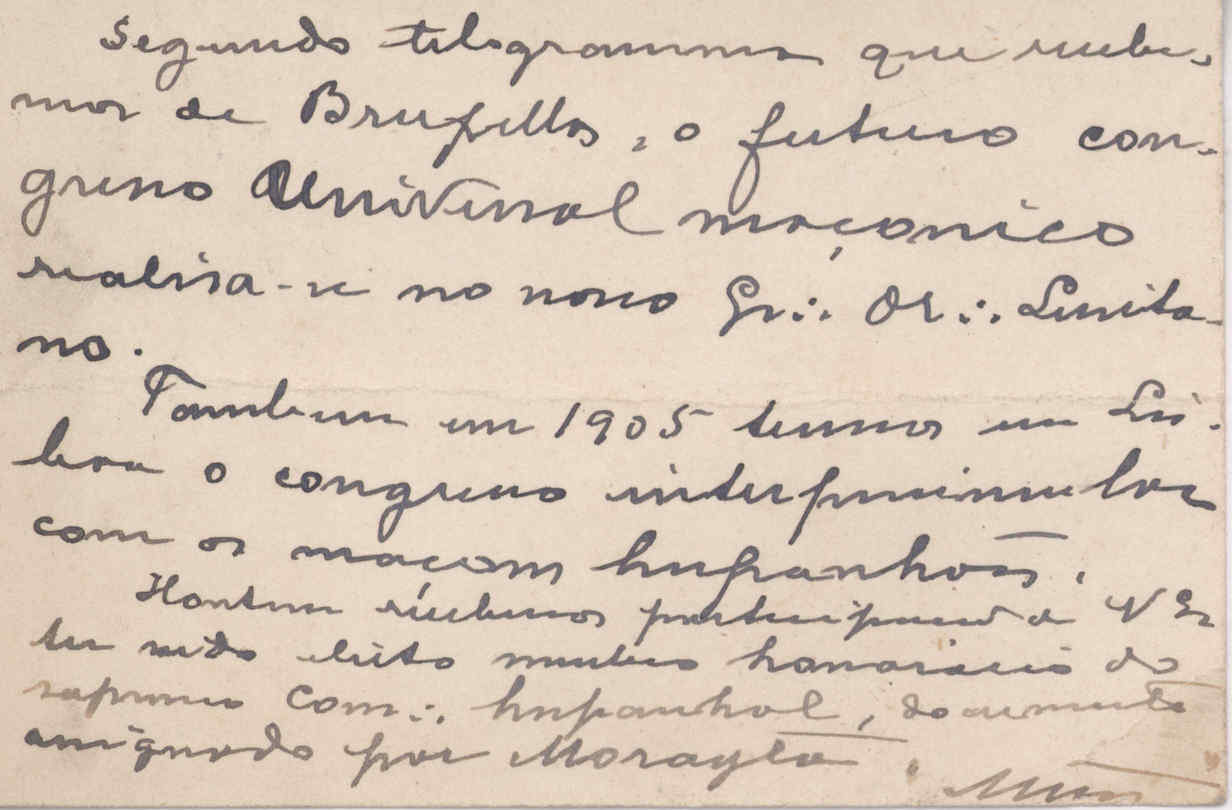 Segundo telegramma que recebe-
mos de Bruxellas, o futuro con-
gresso Universal maçonico
realisa-se no nosso Gr∴ Or∴ Lusita-
no.
Tambem em 1905 temos em Lis-
boa o congresso interpeninsular
com os maçons hespanhoes.
Hontem recebemos participação de V Ex
ter sido eleito membro honorario do
supremo Com∴ hespanhol, documento
assignado por Morayta.